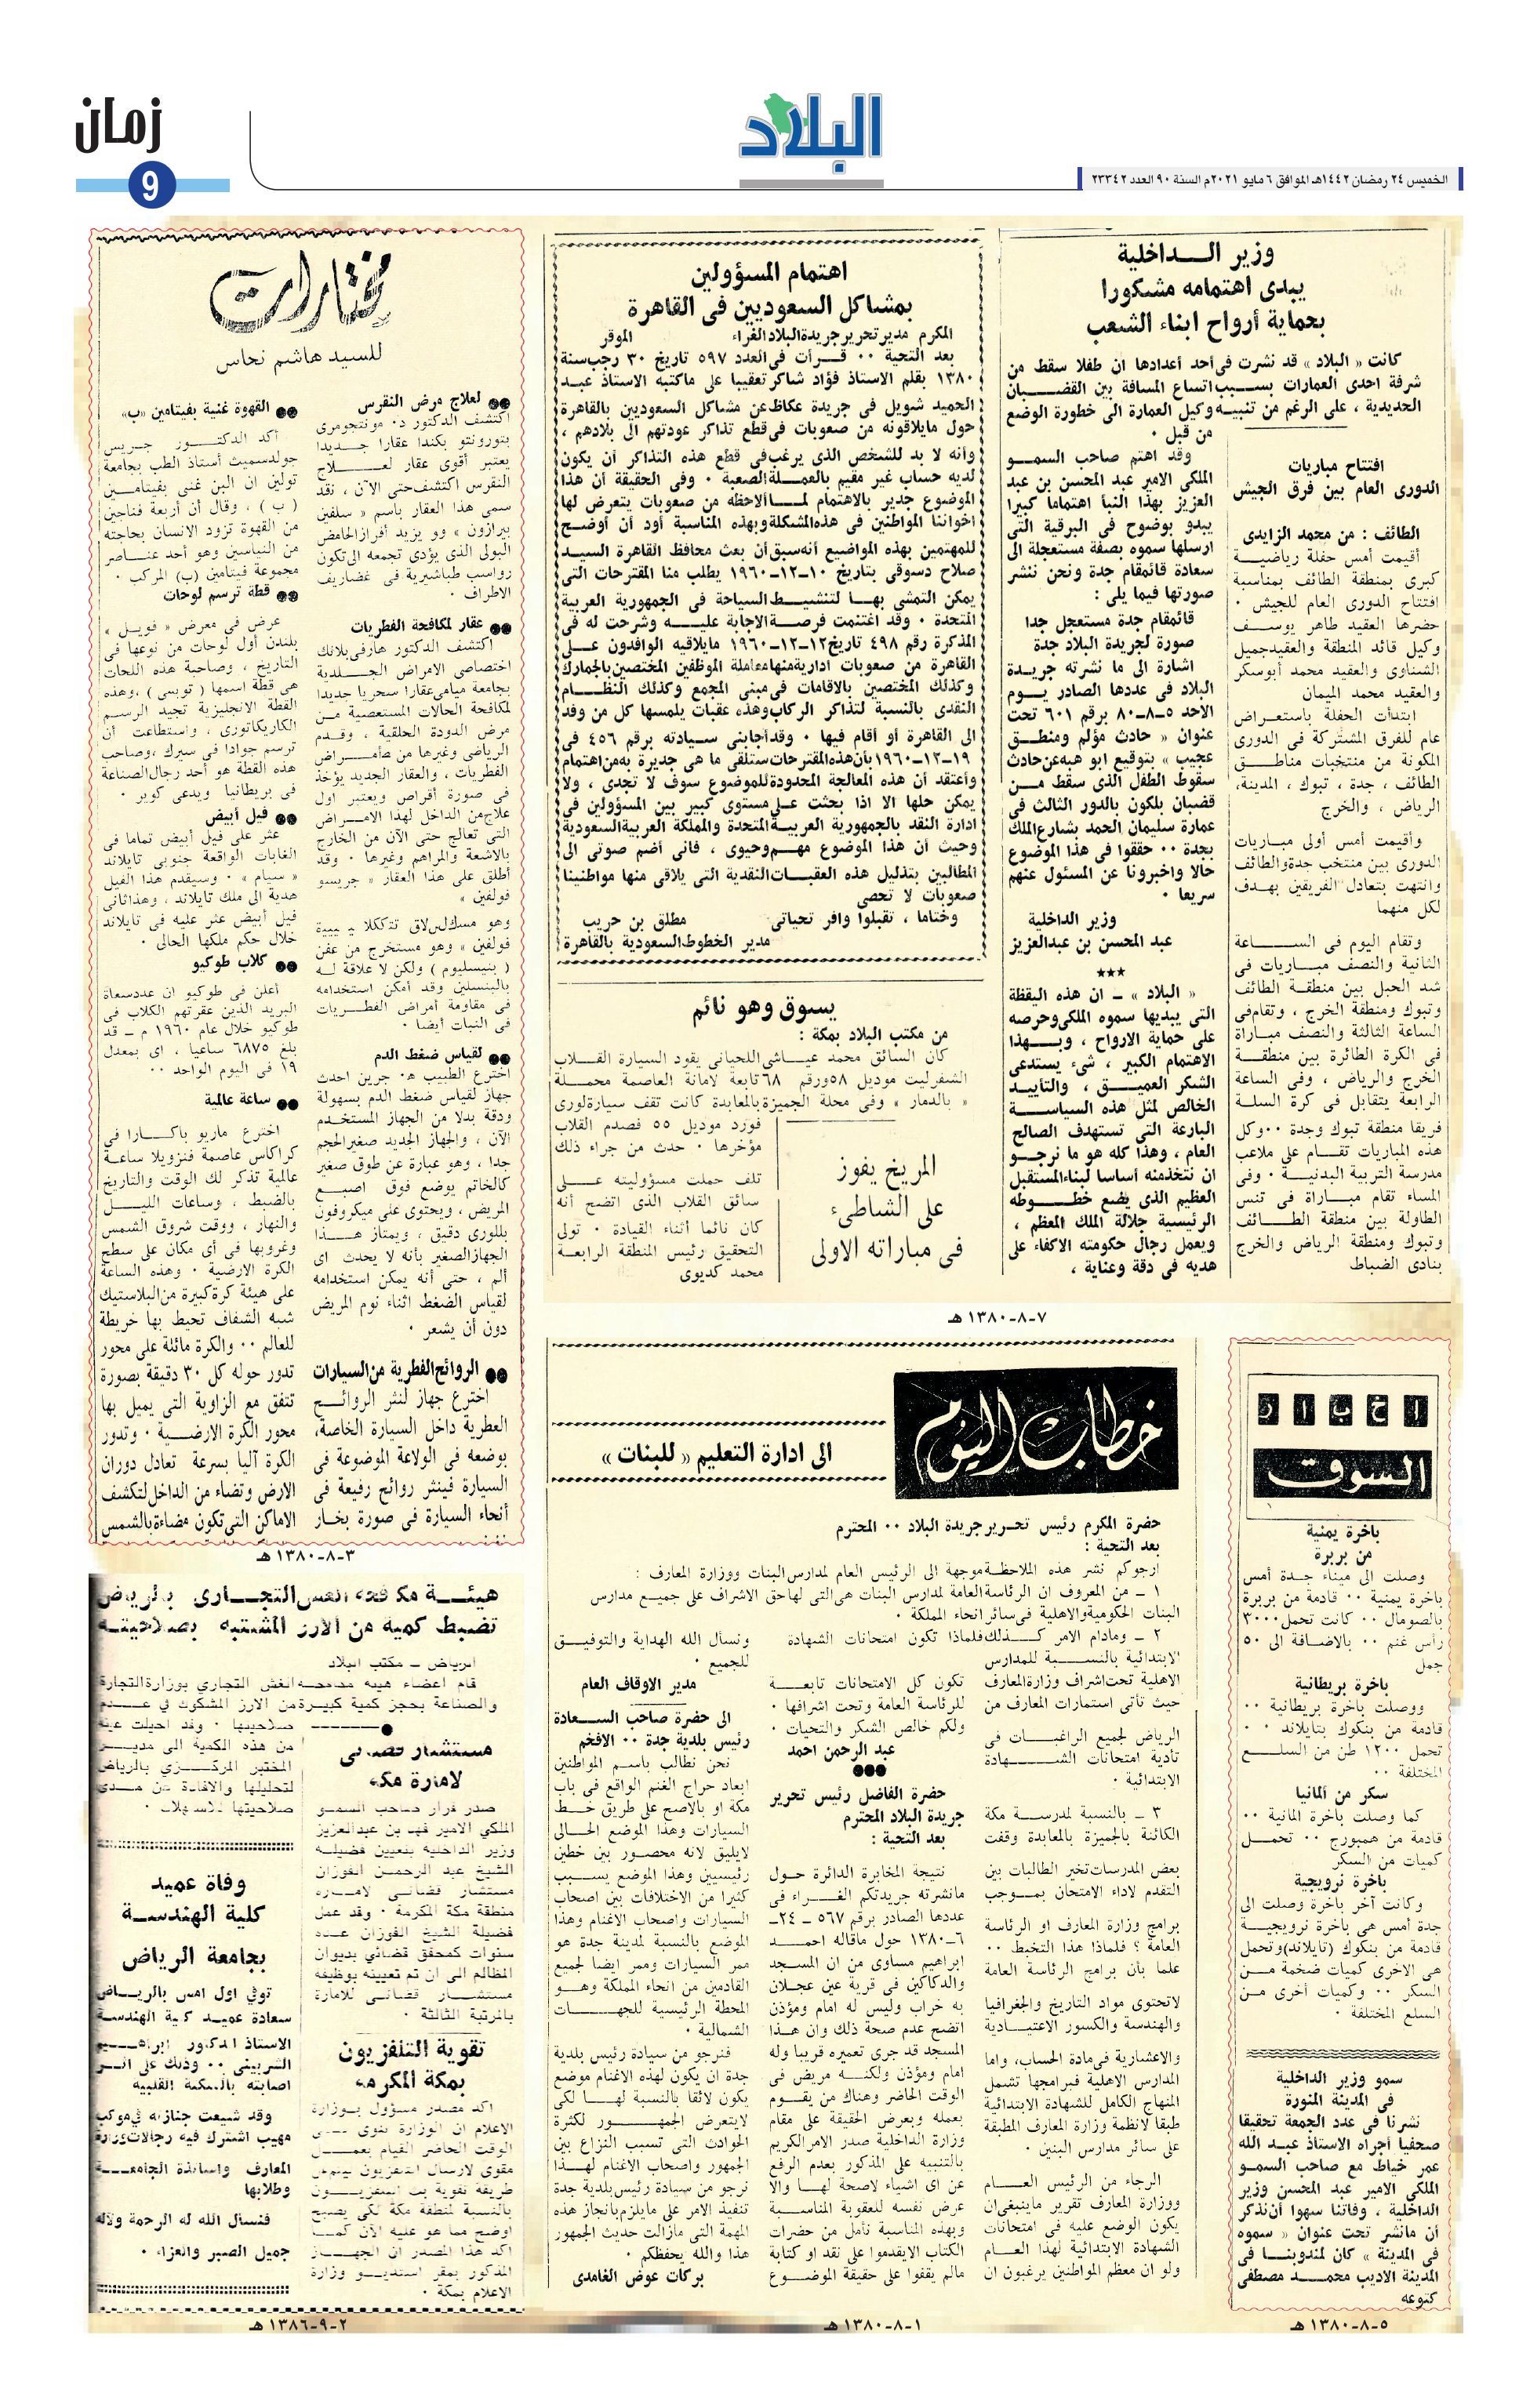 زمان
9
البلاد
الخميس ٢٤ رمضان ١٤٤٢هـ الموافق ٦ مايو ٢٠٢١م السنة ٩٠ العدد ٢٣٣٤٢
وزير الـــداخلية
يبدى اهتمامه مشكورا
بحماية أرواح ابناء الشعب
كانت « البلاد » قد نشرت في أحد أعدادها ان طفلا سقط من
شرفة احدى العمارات بسبب اتساع المسافة بين القضبان
الحديدية ، على الرغم من تنبيه وكيل العمارة الى خطورة الوضع
من قبل .
وقد اهتم صاحب السمو
الملكى الامير عبد المحسن بن عبد
العزيز بهذا النبأ اهتماما كبيرا
يبدو بوضوح في البرقية التى
ارسلها سموه بصفة مستعجلة الى
سعادة قائمقام جدة ونحن ننشر
صورتها فيما يلى :
قائمقام جدة مستعجل جدا
صورة لجريدة البلاد جدة
اشارة الى ما نشرته جريدة
البلاد فى عددها الصادر يوم
الاحد ٥-٨-٨٠ برقم ٦٠١ تحت
عنوان « حادث مؤلم ومنطق
عجيب » بتوقيع ابو هبه عن حادث
سقوط الطفل الذى سقط من
قضبان بلكون بالدور الثالث فى
عمارة سليمان الحمد بشارع الملك
بجدة ٠٠ حققوا فى هذا الموضوع
حالا واخبرونا عن المسئول عنهم
سريعا .
وزير الداخلية
عبد المحسن بن عبدالعزيز
***
« البلاد » - ان هذه اليقظة
التى يبديها سموه الملكى وحرصه
على حماية الارواح ، وبهذا
الاهتمام الكبير ، شىء يستدعى
الشكر العميق ، والتأييد
الخالص لمثل هذه السياسة
البارعة التى تستهدف الصالح
العام ، وهذا كله هو ما نرجو
ان نتخذمنه أساسا لبناء المستقبل
العظيم الذى يضع خطوطه
الرئيسية جلالة الملك المعظم ،
ويعمل رجال حكومته الاكفاء على
هديه فى دقة وعناية ،
افتتاح مباريات
الدورى العام بين فرق الجيش
الطائف : من محمد الزايدى
أقيمت أمس حفلة رياضية
كبرى بمنطقة الطائف بمناسبة
افتتاح الدورى العام للجيش .
حضرها العقيد طاهر يوسف
وكيل قائد المنطقة والعقيد جميل
الشناوى والعقيد محمد أبوسكر
والعقيد محمد الميمان
ابتدأت الحفلة باستعراض
عام للفرق المشتركة فى الدورى
المكونة من منتخبات مناطق
الطائف ، جدة ، تبوك ، المدينة،
الرياض ، والخرج
وأقيمت أمس أولى مباريات
الدورى بين منتخب جدة والطائف
وانتهت بتعادل الفريقين بهدف
لكل منهما
وتقام اليوم فى الساعة
الثانية والنصف مباريات فى
شد الحبل بين منطقة الطائف
وتبوك ومنطقة الخرج ، وتقام فى
الساعة الثالثة والنصف مباراة
فى الكرة الطائرة بين منطقة
الخرج والرياض ، وفى الساعة
الرابعة يتقابل فى كرة السلة
فريقا منطقة تبوك وجدة ٠٠ وكل
هذه المباريات تقام على ملاعب
مدرسة التربية البدنية . وفى
المساء تقام مباراة فى تنس
الطاولة بين منطقة الطائف
وتبوك ومنطقة الرياض والخرج
بنادى الضباط
اهتمام المسؤولين
بمشاكل السعوديين فى القاهرة
المكرم مدير تحرير جريدة البلاد الغراء الموقر
بعد التحية ٠٠ قرأت فى العدد ٥٩٧ تاريخ ٣٠ رجب سنة
١٣٨٠ بقلم الاستاذ فؤاد شاكر تعقيبا على ماكتبه الاستاذ عبد
الحميد شويل فى جريدة عكاظ عن مشاكل السعوديين بالقاهرة
حول مايلاقونه من صعوبات فى قطع تذاكر عودتهم الى بلادهم ،
وأنه لا بد للشخص الذى يرغب فى قطع هذه التذاكر أن يكون
لديه حساب غير مقيم بالعملة الصعبة . وفى الحقيقة أن هذا
الموضوع جدير بالاهتمام لما ألاحظه من صعوبات يتعرض لها
اخواننا المواطنين فى هذه المشكلة وبهذه المناسبة أود أن أوضح
للمهتمين بهذه المواضيع أنه سبق أن بعث محافظ القاهرة السيد
صلاح دسوقى بتاريخ ١٠-١٢-١٩٦٠ يطلب منا المقترحات التى
يمكن التمشى بها لتنشيط السياحة فى الجمهورية العربية
المتحدة . وقد اغتنمت فرصة الاجابة عليه وشرحت له فى
المذكرة رقم ٤٩٨ تاريخ ١٢-١٢-١٩٦٠ مايلاقيه الوافدون على
القاهرة من صعوبات ادارية منها معاملة الموظفين المختصين بالجمارك
وكذلك المختصين بالاقامات فى مبنى المجمع وكذلك النظام
النقدى بالنسبة لتذاكر الركاب وهذه عقبات يلمسها كل من وفد
الى القاهرة أو أقام فيها . وقد أجابنى سيادته برقم ٤٥٦ فى
١٩-١٢-١٩٦٠ بأن هذه المقترحات ستلقى ما هى جديرة به من اهتمام
وأعتقد أن هذه المعالجة المحدودة للموضوع سوف لا تجدى ، ولا
يمكن حلها الا اذا بحثت على مستوى كبير بين المسؤولين فى
ادارة النقد بالجمهورية العربية المتحدة والمملكة العربية السعودية
وحيث أن هذا الموضوع مهم وحيوى ، فانى أضم صوتى الى
المطالبين بتذليل هذه العقبات النقدية التى يلاقى منها مواطنينا
صعوبات لا تحصى
وختاما ، تقبلوا وافر تحياتى مطلق بن حريب
مدير الخطوط السعودية بالقاهرة
يسوق وهو نائم
من مكتب البلاد بمكة :
كان السائق محمد عياشى اللحيانى يقود السيارة القلاب
الشفرليت موديل ٥٨ ورقم ٦٨ تابعة لامانة العاصمة محملة
« بالدمار » وفى محلة الجميزة بالمعابدة كانت تقف سيارة لورى
فورد موديل ٥٥ فصدم القلاب
مؤخرها . حدث من جراء ذلك
تلف حملت مسؤوليته على
سائق القلاب الذى اتضح أنه
كان نائما أثناء القيادة . تولى
التحقيق رئيس المنطقة الرابعة
محمد كديوى
المريخ يفوز
على الشاطىء
فى مباراته الاولى
٧-٨-١٣٨٠ هـ
مختارات
للسيد هاشم نحاس
لعلاج مرض النقرس
اكتشف الدكتور د. مونتجومرى
بتورونتو بكندا عقارا جديدا
يعتبر أقوى عقار لعلاج
النقرس اكتشف حتى الآن ، نقد
سمى هذا العقار باسم « سلفين
بيرازون » وو يزيد أفراز الحامض
البولى الذى يؤدى تجمعه الى تكون
رواسب طباشيرية فى غضاريف
الاطراف .
عقار لمكافحة الفطريات
اكتشف الدكتور هارفى بلانك
اختصاصى الامراض الجلدية
بجامعة ميامى عقارا سحريا جديدا
لمكافحة الحالات المستعصية من
مرض الدودة الحلقية ، وقدم
الرياضى وغيرها من أمراض
الفطريات ، والعقار الجديد يؤخذ
فى صورة أقراص ويعتبر اول
علاج من الداخل لهذا الامراض
التى تعالج حتى الآن من الخارج
بالاشعة والمراهم وغيرها . وقد
أطلق على هذا العقار « جريسو
فولفين »
فولفين » وهو مستخرج من عفن
( بنيسليوم ) ولكن لا علاقة له
بالبنسلين وقد أمكن استخدامه
فى مقاومة أمراض الفطريات
فى النبات أيضا .
لقياس ضغط الدم
اخترع الطبيب ه. جرين احدث
جهاز لقياس ضغط الدم بسهولة
ودقة بدلا من الجهاز المستخدم
الآن ، والجهاز الجديد صغير الحجم
جدا ، وهو عبارة عن طوق صغير
كالخاتم يوضع فوق اصبع
المريض ، ويحتوى على ميكروفون
بللورى دقيق ، ويمتاز هذا
الجهاز الصغير بأنه لا يحدث اى
ألم ، حتى أنه يمكن استخدامه
لقياس الضغط اثناء نوم المريض
دون أن يشعر .
الروائح الفطرية من السيارات
اخترع جهاز لنثر الروائح
العطرية داخل السيارة الخاصة،
بوضعه فى الولاعة الموضوعة فى
السيارة فينثر روائح رفيعة فى
أنحاء السيارة فى صورة بخار
القهوة غنية بفيتامين «ب»
أكد الدكتور جريس
جولدسميث أستاذ الطب بجامعة
تولين ان البن غنى بفيتامين
( ب ) ، وقال أن أربعة فناجين
من القهوة تزود الانسان بحاجته
من النياسين وهو أحد عناصر
مجموعة فيتامين (ب) المركب .
قطة ترسم لوحات
عرض فى معرض « فويل »
بلندن أول لوحات من نوعها فى
التاريخ ، وصاحبة هذه اللحات
هى قطة اسمها ( توبسى ) ،وهذه
القطة الانجليزية تجيد الرسم
الكاريكاتورى ، واستطاعت أن
ترسم جوادا فى سيرك ،وصاحب
هذه القطة هو أحد رجال الصناعة
فى بريطانيا ويدعى كوير .
فيل أبيض
عثر على فيل أبيض تماما فى
الغابات الواقعة جنوبى تايلاند
« سيام » . وسيقدم هذا الفيل
هدية الى ملك تايلاند ، وهذا ثانى
فيل أبيض عثر عليه فى تايلاند
خلال حكم ملكها الحالى .
كلاب طوكيو
أعلن فى طوكيو ان عدد سعاة
البريد الذين عقرتهم الكلاب فى
طوكيو خلال عام ١٩٦٠ م - قد
بلغ ٦٨٧٥ ساعيا ، اى بمعدل
١٩ فى اليوم الواحد ٠٠
ساعة عالمية
اخترع ماريو باكارا فى
كراكاس عاصمة فنزويلا ساعة
عالمية تذكر لك الوقت والتاريخ
بالضبط ، وساعات الليل
والنهار ، ووقت شروق الشمس
وغروبها فى أى مكان على سطح
الكرة الارضية . وهذه الساعة
على هيئة كرة كبيرة من البلاستيك
شبه الشفاف تحيط بها خريطة
للعالم ٠٠ والكرة مائلة على محور
تدور حوله كل ٣٠ دقيقة بصورة
تتفق مع الزاوية التى يميل بها
محور الكرة الارضية . وتدور
الكرة آليا بسرعة تعادل دوران
الارض وتضاء من الداخل لتكشف
الاماكن التى تكون مضاءة بالشمس
٣-٨-١٣٨٠ هـ
اخبار
السوق
باخرة يمنية
من بربرة
وصلت الى ميناء جدة أمس
باخرة يمنية ٠٠ قادمة من بربرة
بالصومال ٠٠ كانت تحمل ٣٠٠٠
رأس غنم ٠٠ بالاضافة الى ٥٠
جمل
باخرة بريطانية
ووصلت باخرة بريطانية ٠٠
قادمة من بنكوك بتايلاند ٠٠
تحمل ١٢٠٠ طن من السلع
المختلفة ٠٠
سكر من ألمانيا
كما وصلت باخرة المانية ٠٠
قادمة من همبورج ٠٠ تحمل
كميات من السكر
باخرة نرويجية
وكانت آخر باخرة وصلت الى
جدة أمس هى باخرة نرويجية
قادمة من بنكوك (تايلاند) وتحمل
هى الاخرى كميات ضخمة من
السكر ٠٠ وكميات أخرى من
السلع المختلفة .
سمو وزير الداخلية
فى المدينة المنورة
نشرنا فى عدد الجمعة تحقيقا
صحفيا أجراه الاستاذ عبد الله
عمر خياط مع صاحب السمو
الملكى الامير عبد المحسن وزير
الداخلية ، وفاتنا سهوا أن نذكر
أن مانشر تحت عنوان « سموه
فى المدينة » كان لمندوبنا فى
المدينة الاديب محمد مصطفى
كتوعه
٥-٨-١٣٨٠ هـ
خطاب اليوم
الى ادارة التعليم « للبنات »
حضرة المكرم رئيس تحرير جريدة البلاد ٠٠ المحترم
بعد التحية :
ارجوكم نشر هذه الملاحظة موجهة الى الرئيس العام لمدارس البنات ووزارة المعارف :
١ - من المعروف ان الرئاسة العامة لمدارس البنات هى التى لها حق الاشراف على جميع مدارس
البنات الحكومية والاهلية فى سائر انحاء المملكة .
٢ - ومادام الامر كذلك فلماذا تكون امتحانات الشهادة
الابتدائية بالنسبة للمدارس
الاهلية تحت اشراف وزارة المعارف
حيث تأتى استمارات المعارف من
الرياض لجميع الراغبات فى
تأدية امتحانات الشهادة
الابتدائية .
٣ - بالنسبة لمدرسة مكة
الكائنة بالجميزة بالمعابدة وقفت
بعض المدرسات تخير الطالبات بين
التقدم لاداء الامتحان بموجب
برامج وزارة المعارف او الرئاسة
العامة ؟ فلماذا هذا التخبط ٠٠
علما بأن برامج الرئاسة العامة
لاتحتوى مواد التاريخ والجغرافيا
والهندسة والكسور الاعتيادية
والاعشارية فى مادة الحساب، واما
المدارس الاهلية فبرامجها تشمل
المنهاج الكامل للشهادة الابتدائية
طبقا لانظمة وزارة المعارف المطبقة
على سائر مدارس البنين .
الرجاء من الرئيس العام
ووزارة المعارف تقرير ماينبغى ان
يكون الوضع عليه فى امتحانات
الشهادة الابتدائية لهذا العام
ولو ان معظم المواطنين يرغبون ان
تكون كل الامتحانات تابعة
للرئاسة العامة وتحت اشرافها .
ولكم خالص الشكر والتحيات .
عبد الرحمن احمد
حضرة الفاضل رئيس تحرير
جريدة البلاد المحترم
بعد التحية :
نتيجة المخابرة الدائرة حول
مانشرته جريدتكم الغراء فى
عددها الصادر برقم ٥٦٧ - ٢٤-
٦-١٣٨٠ حول ماقاله احمد
ابراهيم مساوى من ان المسجد
والدكاكين فى قرية عين عجلان
به خراب وليس له امام ومؤذن
اتضح عدم صحة ذلك وان هذا
المسجد قد جرى تعميره قريبا وله
امام ومؤذن ولكنه مريض فى
الوقت الحاضر وهناك من يقوم
بعمله وبعرض الحقيقة على مقام
وزارة الداخلية صدر الامر الكريم
بالتنبيه على المذكور بعدم الرفع
عن اى اشياء لاصحة لها والا
عرض نفسه للعقوبة المناسبة
وبهذه المناسبة نأمل من حضرات
الكتاب الايقدموا على نقد او كتابة
مالم يقفوا على حقيقة الموضوع
ونسأل الله الهداية والتوفيق
للجميع .
مدير الاوقاف العام
الى حضرة صاحب السعادة
رئيس بلدية جدة ٠٠ الافخم
نحن نطالب باسم المواطنين
ابعاد حراج الغنم الواقع فى باب
مكة او بالاصح على طريق خط
السيارات وهذا الموضع الحالى
لايليق لانه محصور بين خطين
رئيسيين وهذا الموضع يسبب
كثيرا من الاختلافات بين اصحاب
السيارات واصحاب الاغنام وهذا
الموضع بالنسبة لمدينة جدة هو
ممر السيارات وممر ايضا لجميع
القادمين من انحاء المملكة وهو
المحطة الرئيسية للجهات
الشمالية .
فنرجو من سيادة رئيس بلدية
جدة ان يكون لهذه الاغنام موضع
يكون لائقا بالنسبة لها لكى
لايتعرض الجمهور لكثرة
الحوادث التى تسبب النزاع بين
الجمهور واصحاب الاغنام لهذا
نرجو من سيادة رئيس بلدية جدة
تنفيذ الامر على مايلزم بانجاز هذه
المهمة التى مازالت حديث الجمهور
هذا والله يحفظكم .
بركات عوض الغامدى
١-٨-١٣٨٠ هـ
هيئة مكافحة الغش التجارى بالرياض
تضبط كمية من الارز المشتبه بصلاحيته
الرياض - مكتب البلاد
قام اعضاء هيئة مكافحة الغش التجاري بوزارة التجارة
والصناعة بحجز كمية كبيرة من الارز المشكوك في عدم
صلاحيتها . وقد احيلت عينة
من هذه الكمية الى مدير
المختبر المركزي بالرياض
لتحليلها والافادة عن مدى
صلاحيتها للاستهلاك .
مستشار قضائى
لامارة مكة
صدر قرار صاحب السمو
الملكي الامير فهد بن عبدالعزيز
وزير الداخلية بتعيين فضيلة
الشيخ عبد الرحمن الفوزان
مستشار قضائي لامارة
منطقة مكة المكرمة . وقد عمل
فضيلة الشيخ الفوزان عدة
سنوات كمحقق قضائي بديوان
المظالم الى ان تم تعيينه بوظيفة
مستشار قضائي للامارة
بالمرتبة الثالثة .
تقوية التلفزيون
بمكة المكرمة
اكد مصدر مسؤول بوزارة
الاعلام ان الوزارة تنوي في
الوقت الحاضر القيام بعمل
مقوي لارسال التلفزيون
طريقة تقوية بث التلفزيون
بالنسبة لمنطقة مكة لكي يصبح
اوضح مما هو عليه الآن كما
اكد هذا المصدر ان الجهاز
المذكور بمقر استديو وزارة
الاعلام بمكة .
وفاة عميد
كلية الهندسة
بجامعة الرياض
توفي اول امس بالرياض
سعادة عميد كلية الهندسة
الاستاذ الدكتور ابراهيم
الشربيني ٠٠ وذلك على اثر
اصابته بالسكتة القلبية
وقد شيعت جنازته في موكب
مهيب اشترك فيه رجالات وزارة
المعارف واساتذة الجامعة
وطلابها
فنسأل الله له الرحمة ولآله
جميل الصبر والعزاء .
٢-٩-١٣٨٦ هـ